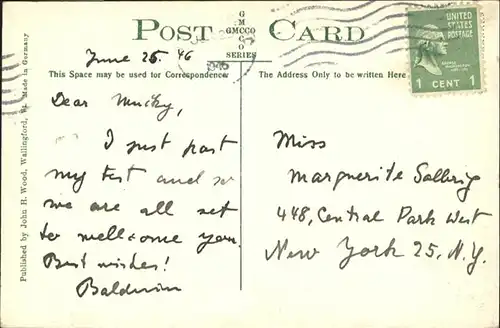 POST CARD
G
M
GMCCO
C
O
SERIES
June 25. 46
1946
UNITED
STATES
POSTAGE
1 CENT 1
This Space may be used for Correspondence
The Address Only to be written Here
Published by John H. Wood, Wallingford, Vt. Made in Germany
Dear Mucky,
I just past
my test and so
we are all set
to wellcome you.
Best wishes!
Baldwin
Miss
Marguerite Salbrig
448, Central Park West
New York 25, N.Y.